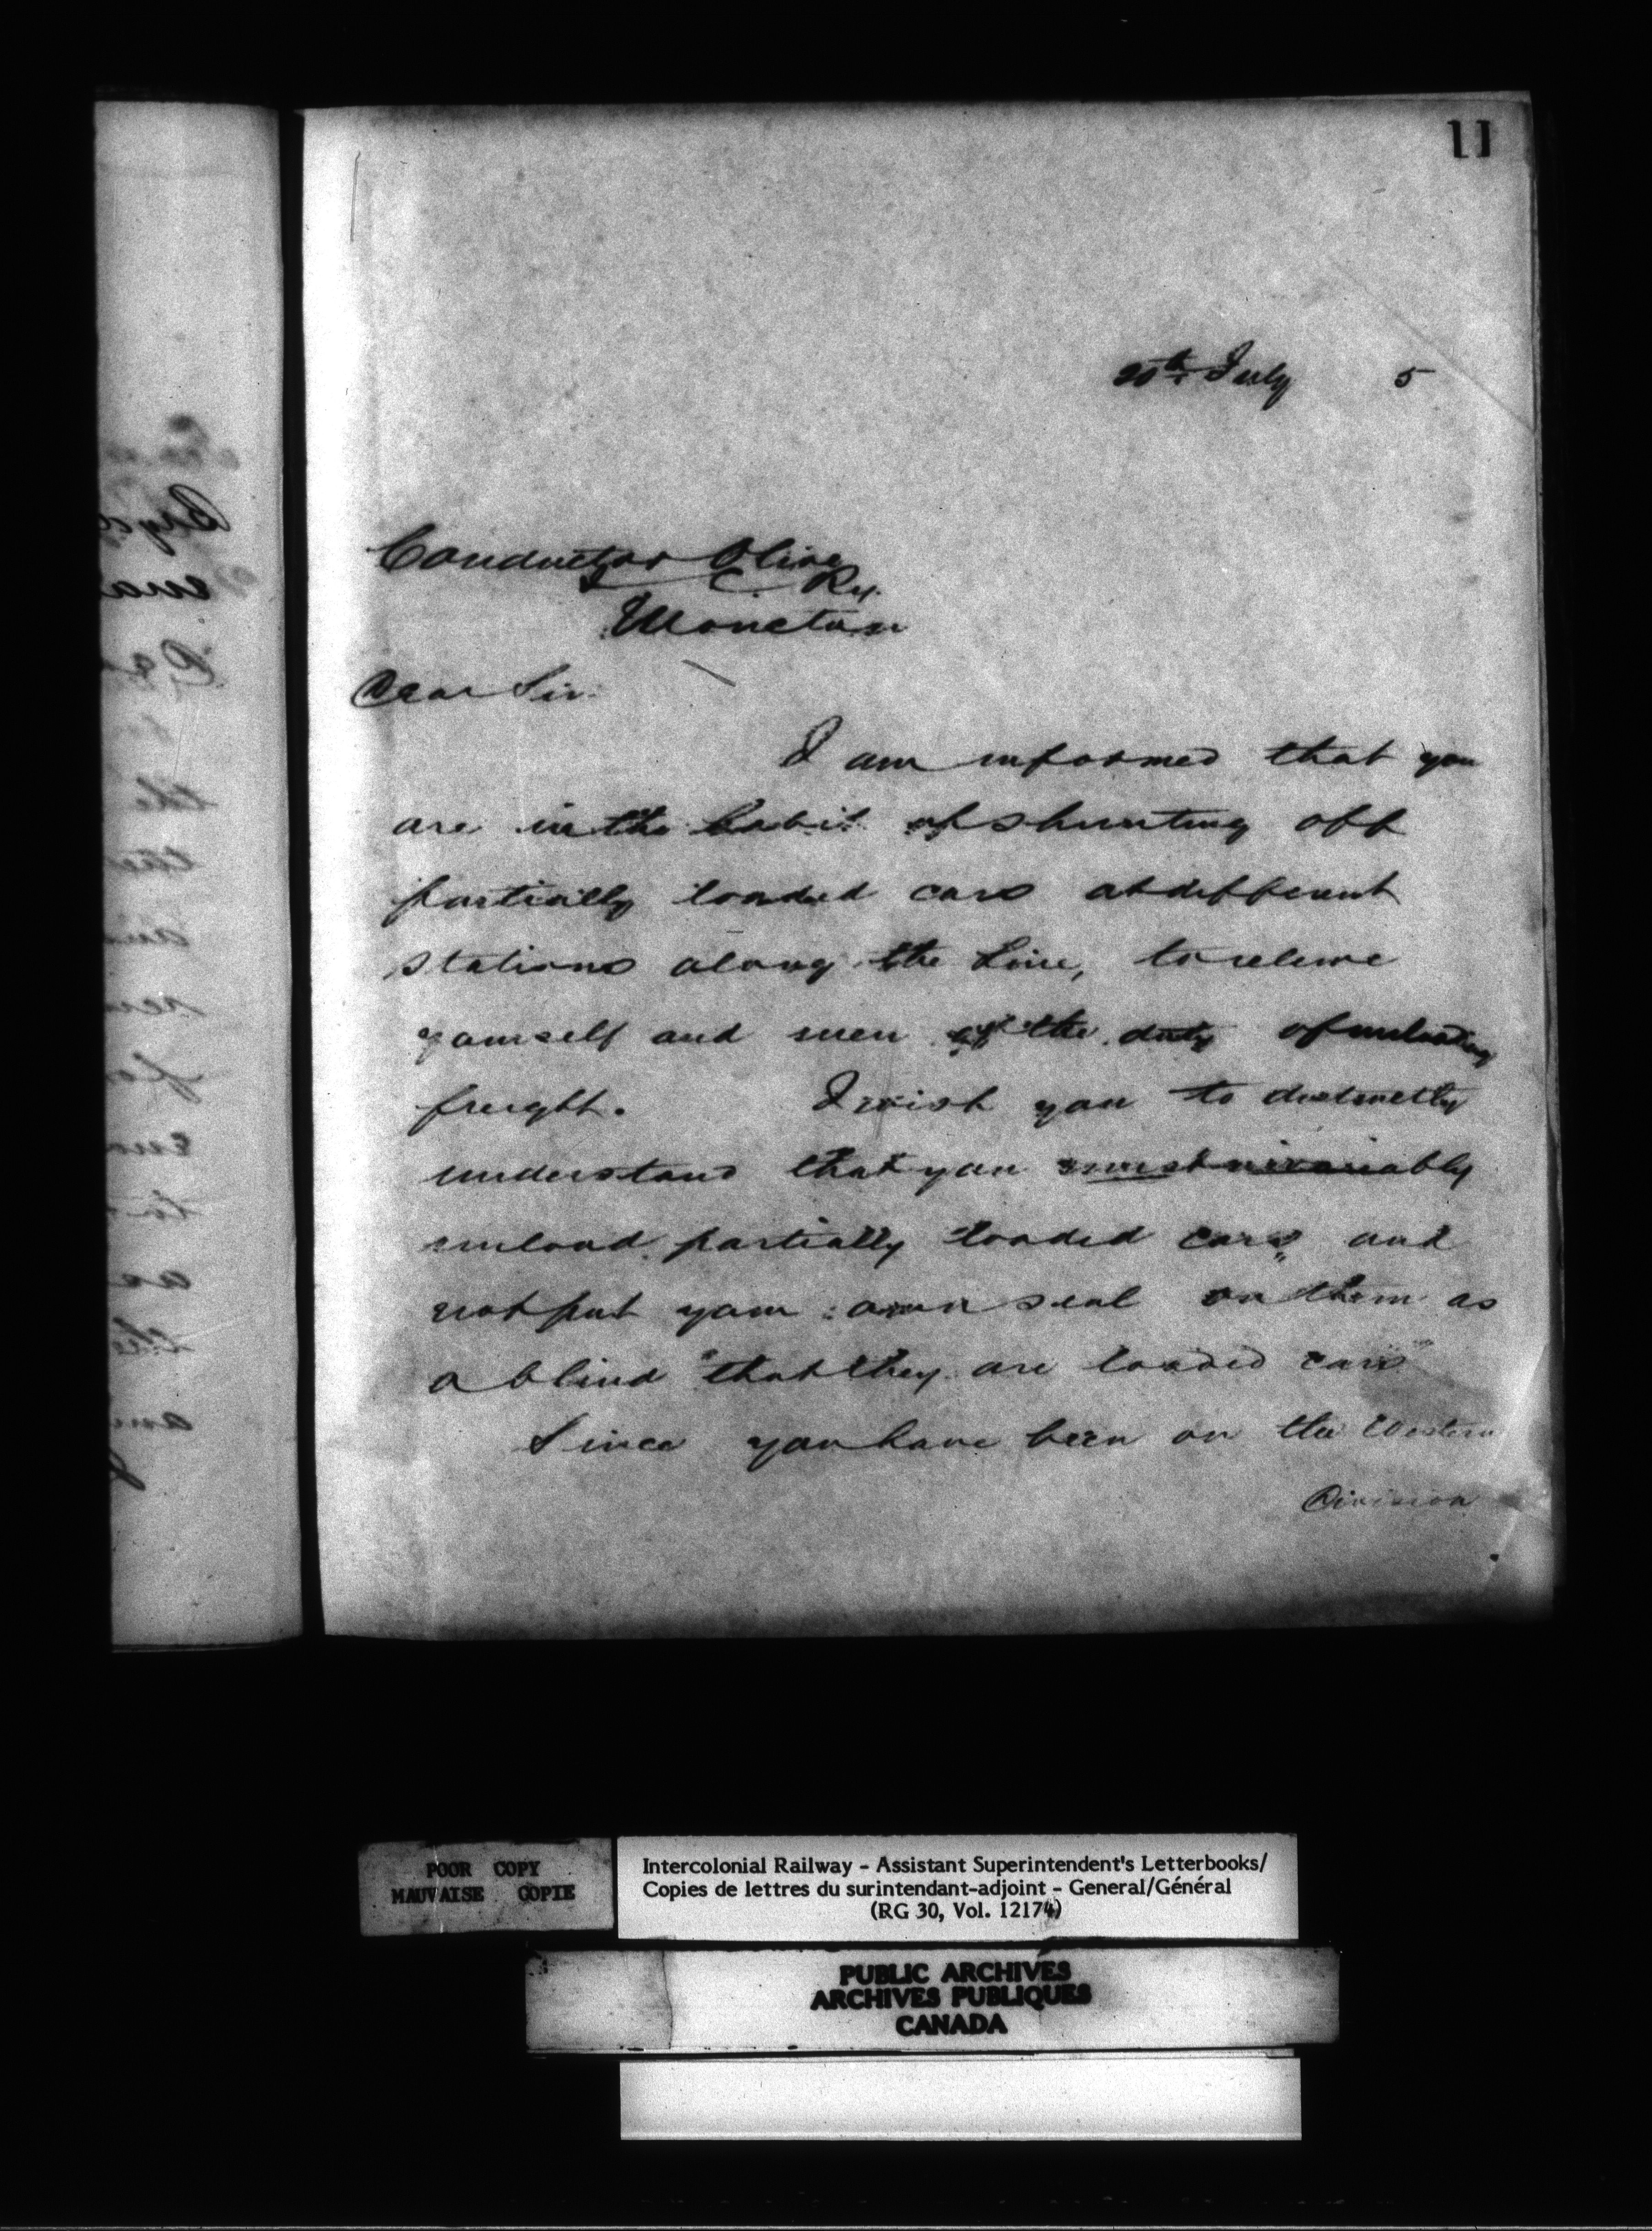 11
20th July 5
Conductor Olive
I. C. Ry.
Moncton
Dear Sir.
I am informed that you
are in the habit of shunting off
partially loaded cars at different
stations along the Line, to relieve
yourself and men of the duty of unloading
freight. I wish you to distinctly
understand that you must invariably
unload partially loaded cars, and
not put your own seal on them as
a blind that they are loaded cars
Since you have been on the Western
Division
POOR COPY
MAUVAISE COPIE
Intercolonial Railway - Assistant Superintendent's Letterbooks/
Copies de lettres du surintendant-adjoint - General/Général
(RG 30, Vol. 12174)
PUBLIC ARCHIVES
ARCHIVES PUBLIQUES
CANADA